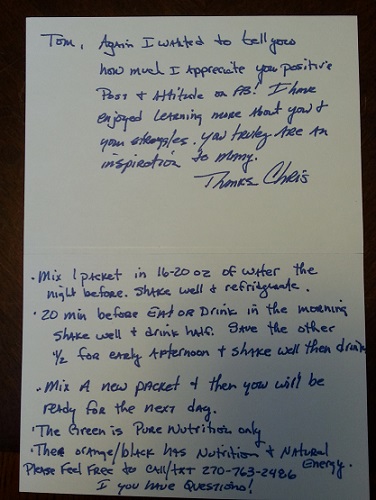 Tom, Again I wanted to tell you
how much I Appreciate you positive
Post & Attitude on FB! I have
enjoyed Learning more About you &
your struggles. You truley Are An
inspiration to many.
Thanks Chris
• Mix 1 packet in 16-20 oz of water the
night before. Shake well & refridgerate.
• 20 min before Eat or Drink in the morning
Shake well & drink half. Save the other
1/2 for early Afternoon & shake well then drink
• Mix A new packet & then you will be
ready for the next day.
• The Green is Pure Nutrition only
• The orange/black has Nutrition & Natural
Energy.
Please Feel Free to Call/txt 270-763-2486
I you have Questions!